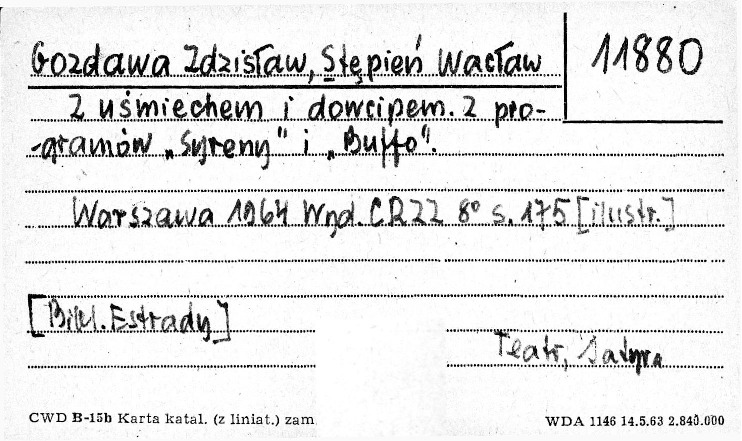 Gozdawa Zdzisław, Stępień Wacław
11880
Z uśmiechem i dowcipem. Z pro-
-gramów „Syreny" i „Buffo".
Warszawa 1964 Wyd. CRZZ 8° s. 175 [ilustr.]
[Bibl. Estrady]
Teatr, Satyra
CWD B-15b Karta katal. (z liniat.) zam
WDA 1146 14.5.63 2.840.000